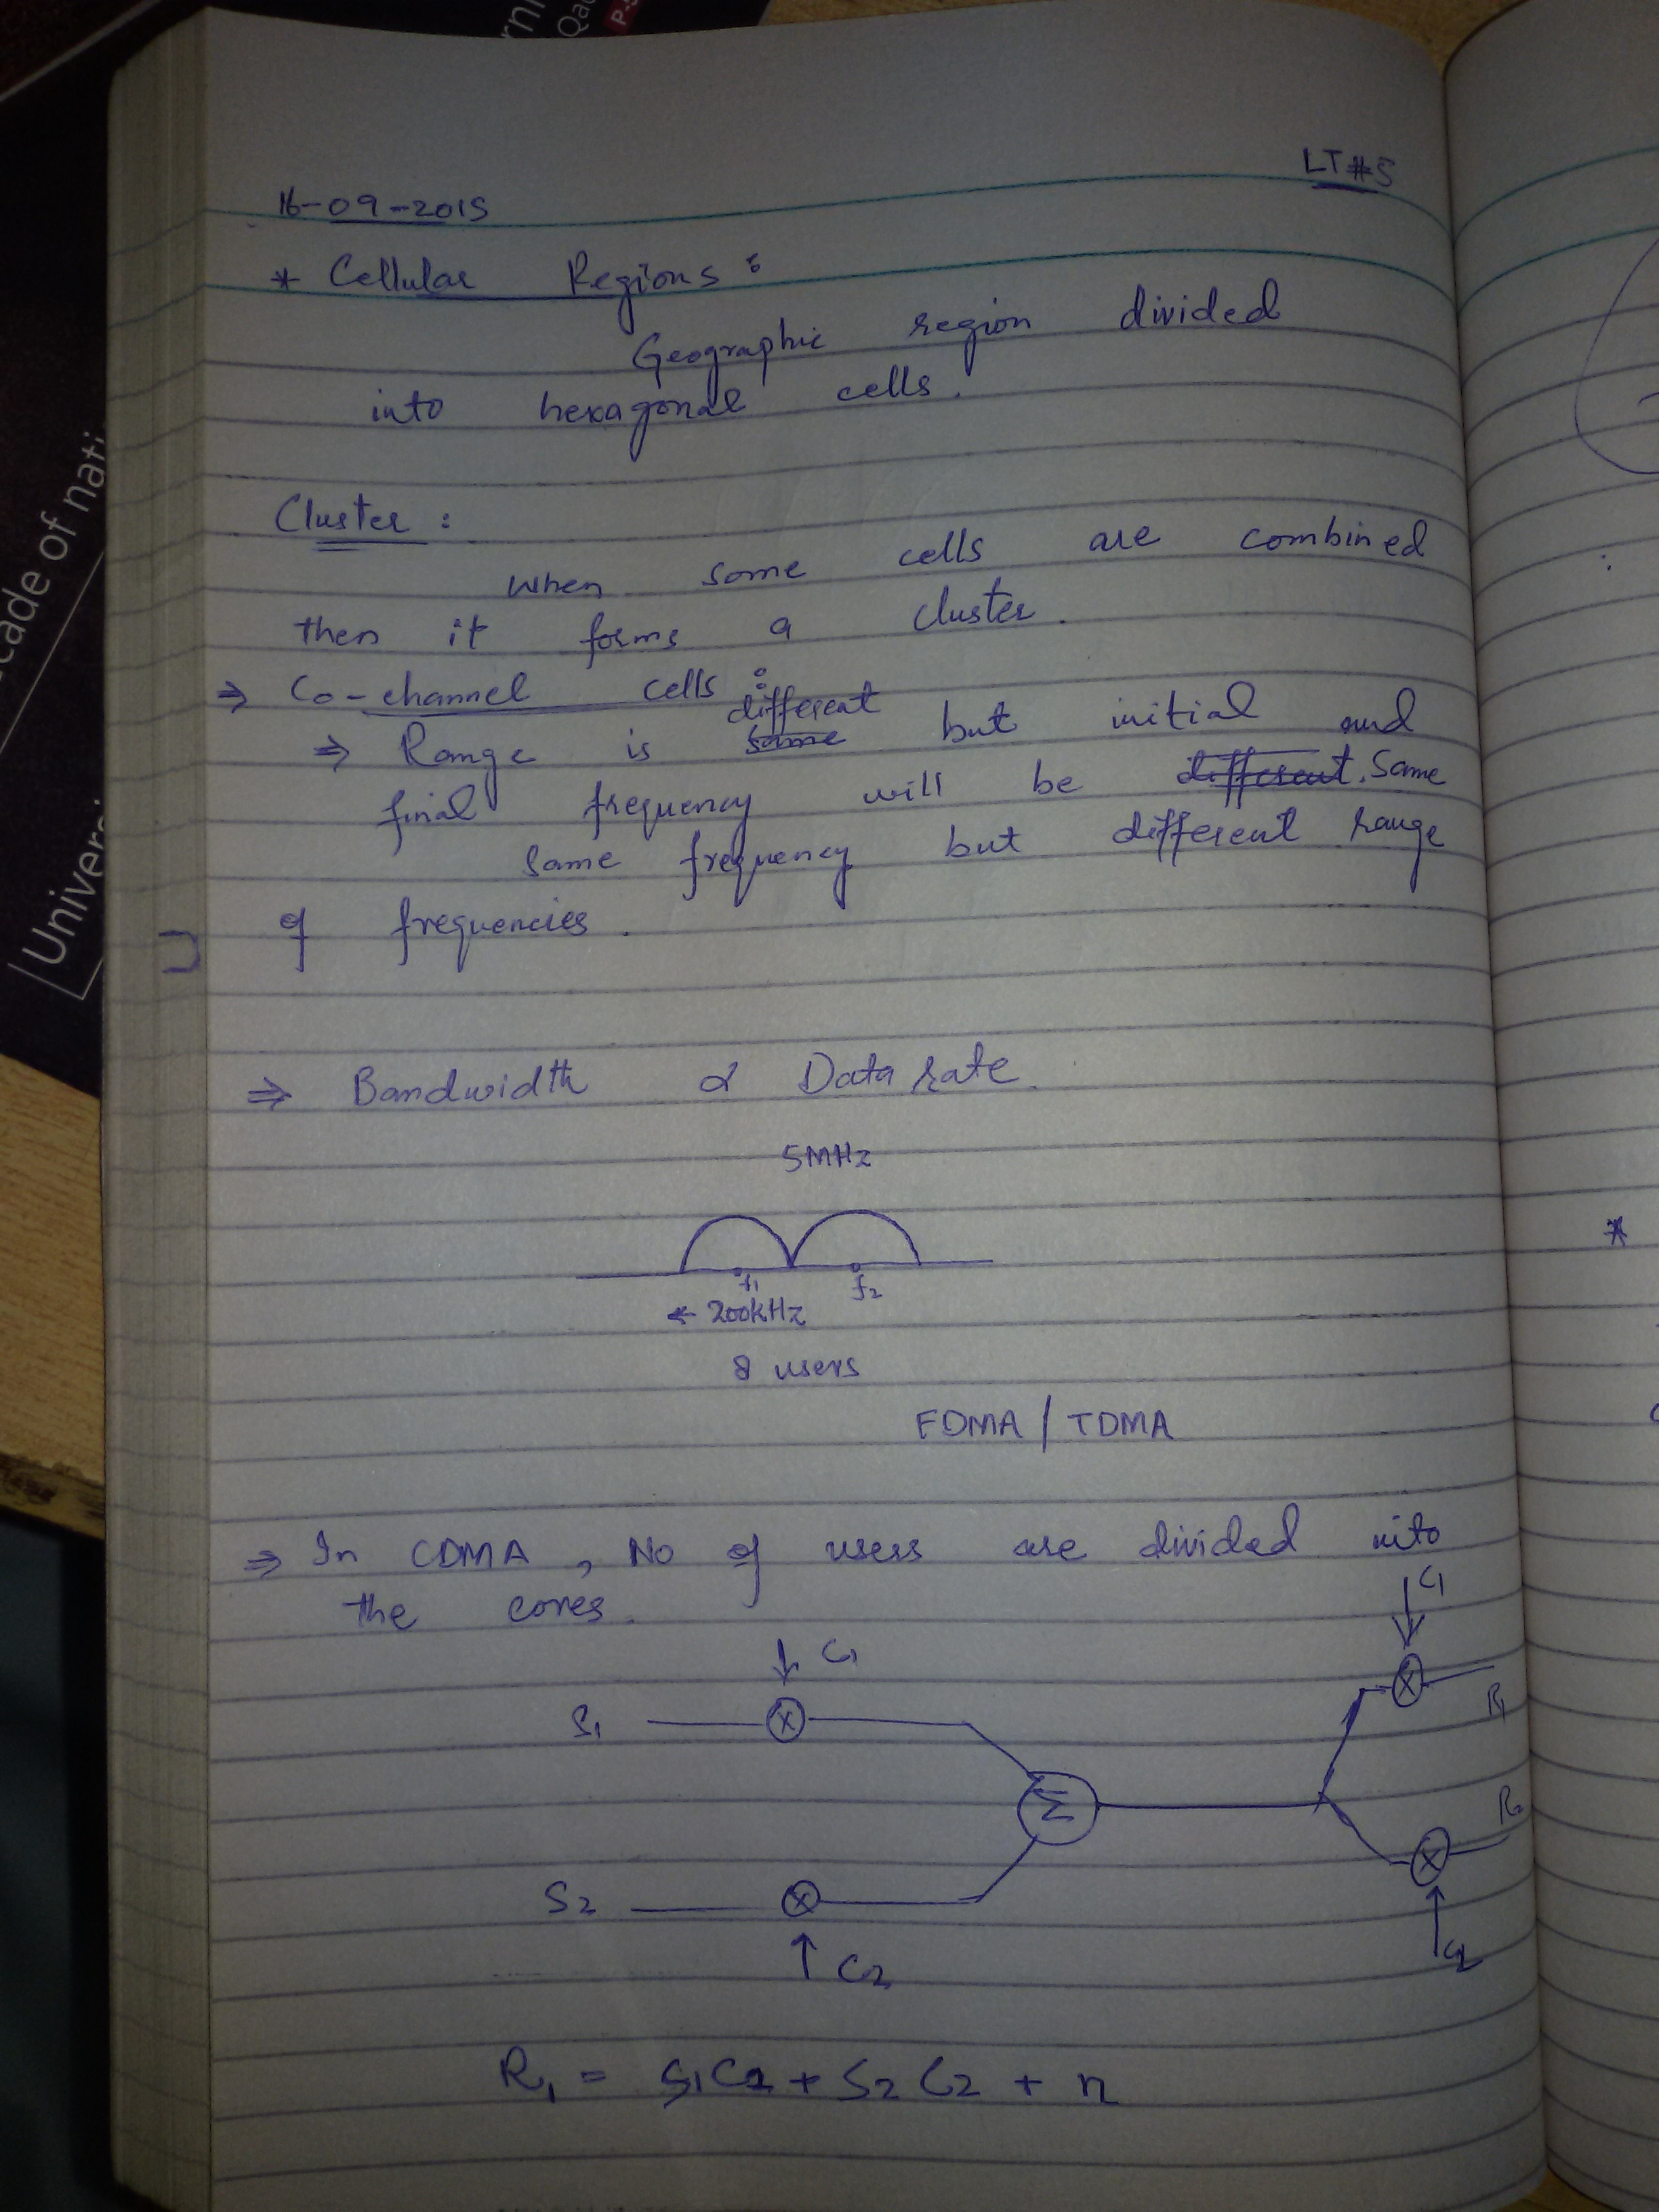 LT#5
16-09-2015
* Cellular Regions:
Geographic region divided
into hexagonal cells.
Cluster:
when some cells are combined
then it forms a cluster.
⇒ Co-channel cells:
different
⇒ Range is same but initial and
final frequency will be different. Same
same frequency but different range
of frequencies.
⇒ Bandwidth α Data rate.
5MHz
f1 f2
← 200kHz
8 users
FDMA / TDMA
⇒ In CDMA, No of users are divided into
the cores.
C1
C1
S1
R1
Σ
S2
C2
C2
R1 = S1C1 + S2C2 + n
cade of nati
Univers